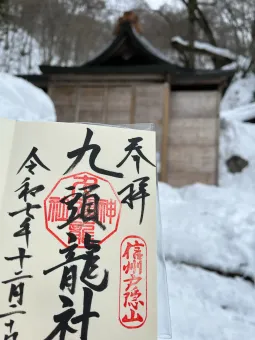 奉拝
信州戸隠山
九頭龍社
令和七年十二月